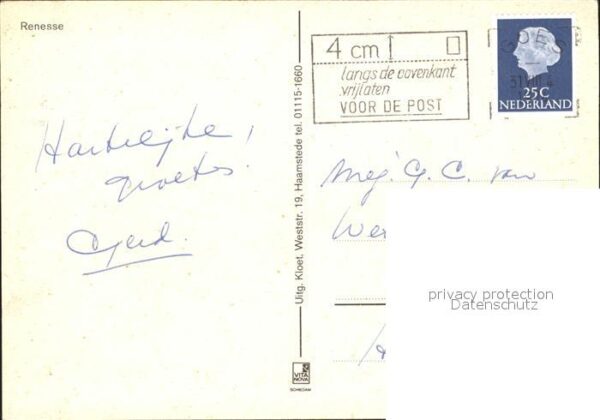 Renesse
4 cm
langs de bovenkant
vrijlaten
VOOR DE POST
GOES
25C
NEDERLAND
Hartelijke
groetes.
Gerd.
Uitg. Kloet, Weststr. 19, Haamstede tel. 01115-1660
Mej. G. C. van
privacy protection
Datenschutz
VITA
NOVA
SCHIEDAM